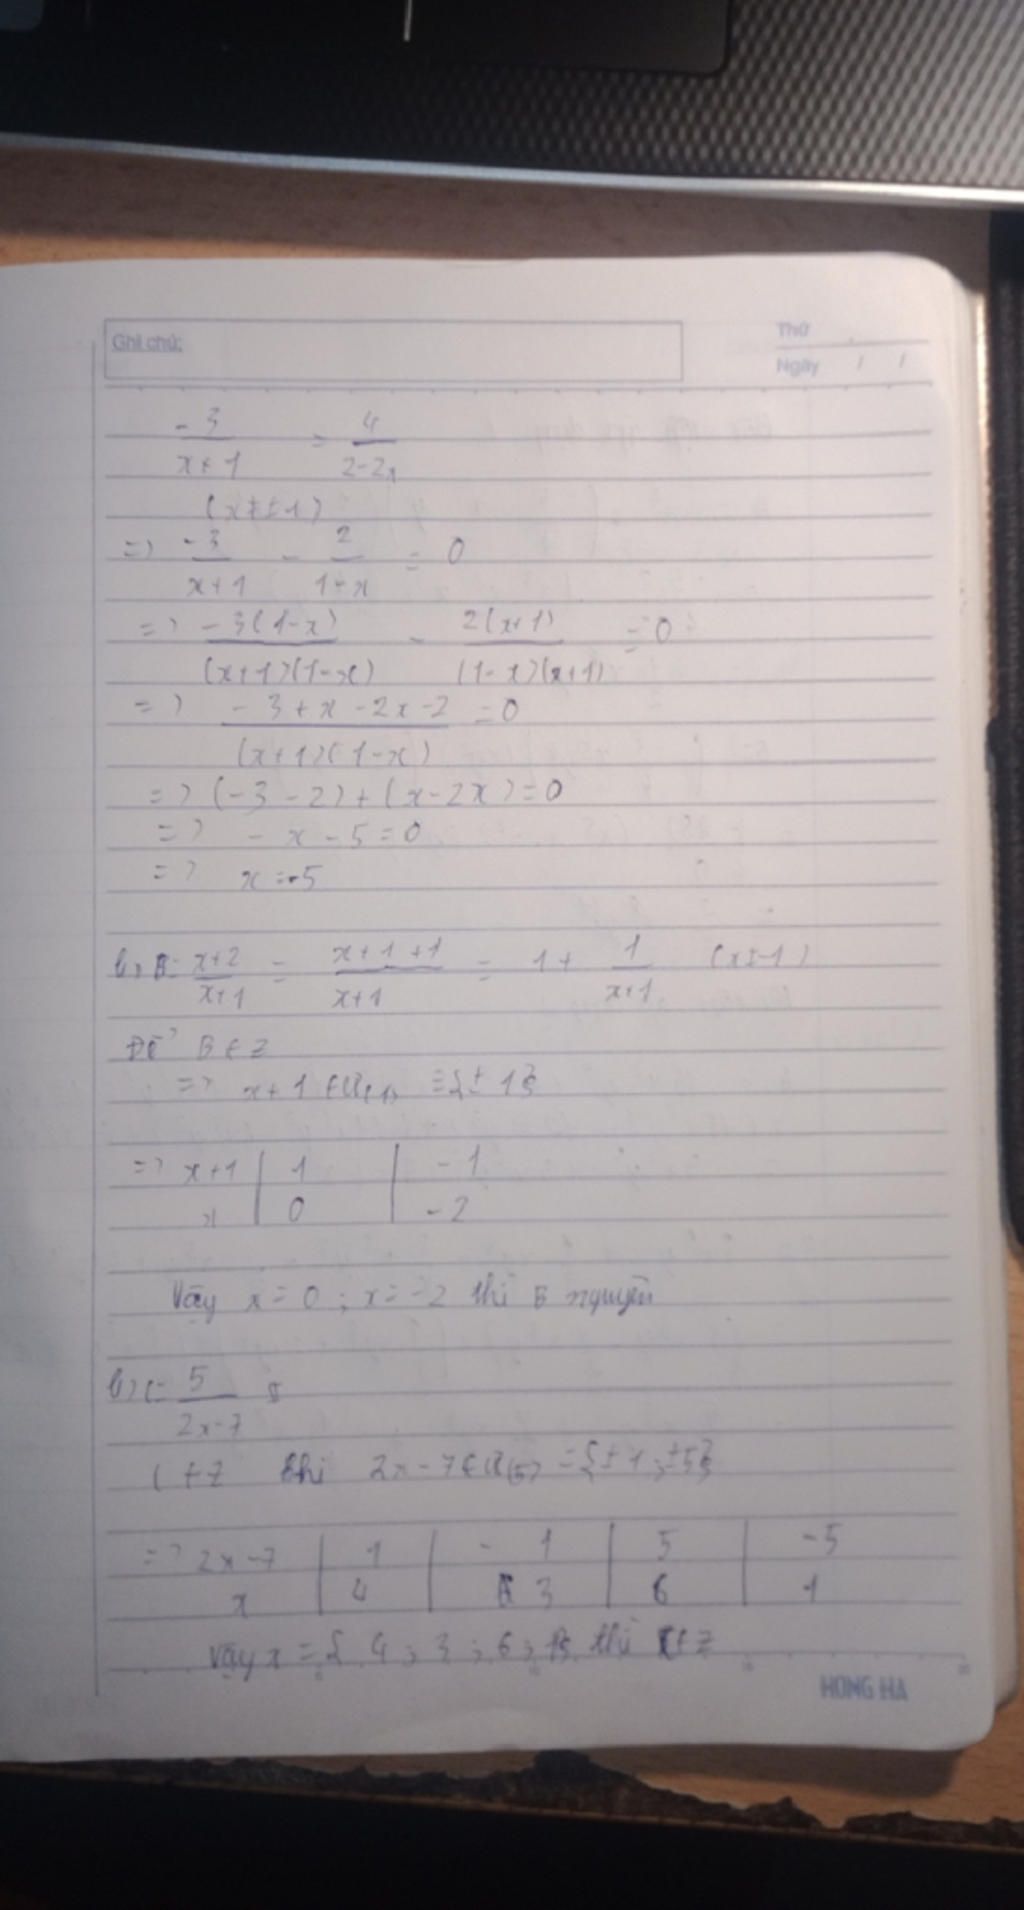 Ghi chú:
Thứ
Ngày / /
-3/(x+1) = 4/(2-2x)
(x≠±1)
=> -3/(x+1) - 2/(1-x) = 0
=> -3(1-x)/((x+1)(1-x)) - 2(x+1)/((1-x)(x+1)) = 0
=> (-3+x-2x-2)/((x+1)(1-x)) = 0
=> (-3-2)+(x-2x)=0
=> -x-5=0
=> x=-5
b, B= (x+2)/(x+1) = (x+1+1)/(x+1) = 1+ 1/(x+1)
Để B∈Z
=> x+1 ∈Ư(1) = {±1}
=> x+1 | 1 | -1
x | 0 | -2
Vậy x=0 ; x=-2 thì B nguyên
5/(2x-7)
C∈Z khi 2x-7∈Ư(5) ={±1;±5}
=> 2x-7 | 1 | -1 | 5 | -5
x | 4 | 3 | 6 | 1
Vậy x={4;3;6;1} thì C∈Z
HONG HA